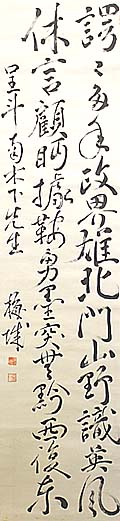 諤々多年政界雄北門山野識英風
休言顧眄據鞍勇墨突無黔西復東
呈斗南木下先生 梅城